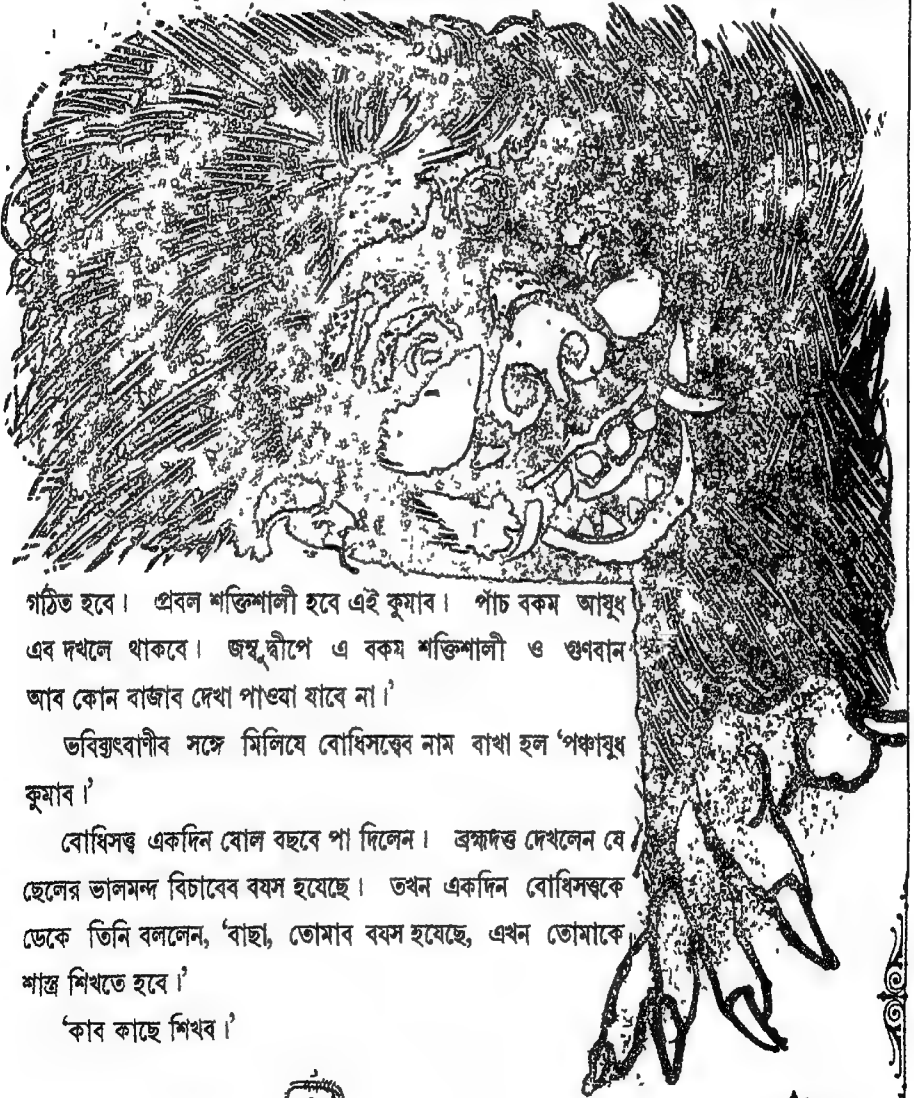 গঠিত হবে। প্রবল শক্তিশালী হবে এই কুমাব। পাঁচ বকম আযুধ
এব দখলে থাকবে। জম্বুদ্বীপে এ বকম শক্তিশালী ও গুণবান
আব কোন বাজাব দেখা পাওযা যাবে না।’
ভবিষ্যৎবাণীব সঙ্গে মিলিযে বোধিসত্ত্বেব নাম বাখা হল ‘পঞ্চাযুধ
কুমাব।’
বোধিসত্ত্ব একদিন ষোল বছবে পা দিলেন। ব্রহ্মদত্ত দেখলেন যে
ছেলের ভালমন্দ বিচাবেব বযস হযেছে। তখন একদিন বোধিসত্ত্বকে
ডেকে তিনি বললেন, ‘বাছা, তোমাব বযস হযেছে, এখন তোমাকে
শাস্ত্র শিখতে হবে।’
‘কাব কাছে শিখব।’